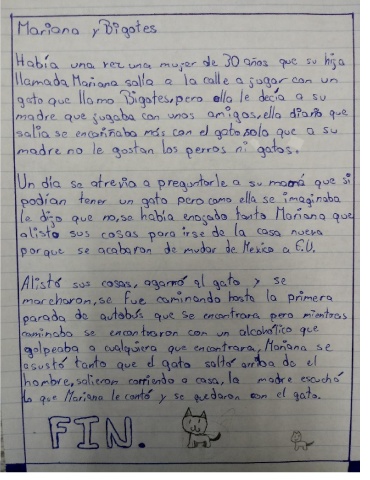 Mariana y Bigotes
Había una vez una mujer de 30 años que su hija
llamada Mariana salía a la calle a jugar con un
gato que llamo Bigotes, pero ella le decía a su
madre que jugaba con unos amigos, ella diario que
salia se encariñaba más con el gato, solo que a su
madre no le gostan los perros ni gatos.
Un día se atrevio a preguntarle a su mamá que si
podían tener un gato pero como ella se imaginaba
le dijo que no, se había enojado tanto Mariana que
alisto sus cosas para irse de la casa nueva
porque se acabaron de mudar de Mexico a E.U.
Alistó sus cosas, agarró al gato y se
marcharon, se fue caminando hasta la primera
parada de autobús que se encontrara pero mientras
caminaba se encontraron con un alcoholico que
golpeaba a cualquiera que encontrara, Mariana se
asustó tanto que el gato saltó arriba de el
hombre, salieron corriendo a casa, la madre escuchó
lo que Mariana le contó y se quedaron con el gato.
FIN.